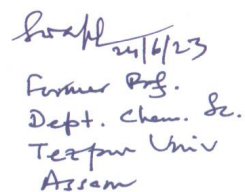 24/6/23
Former Prof.
Dept. Chem. Sc.
Tezpur Univ
Assam